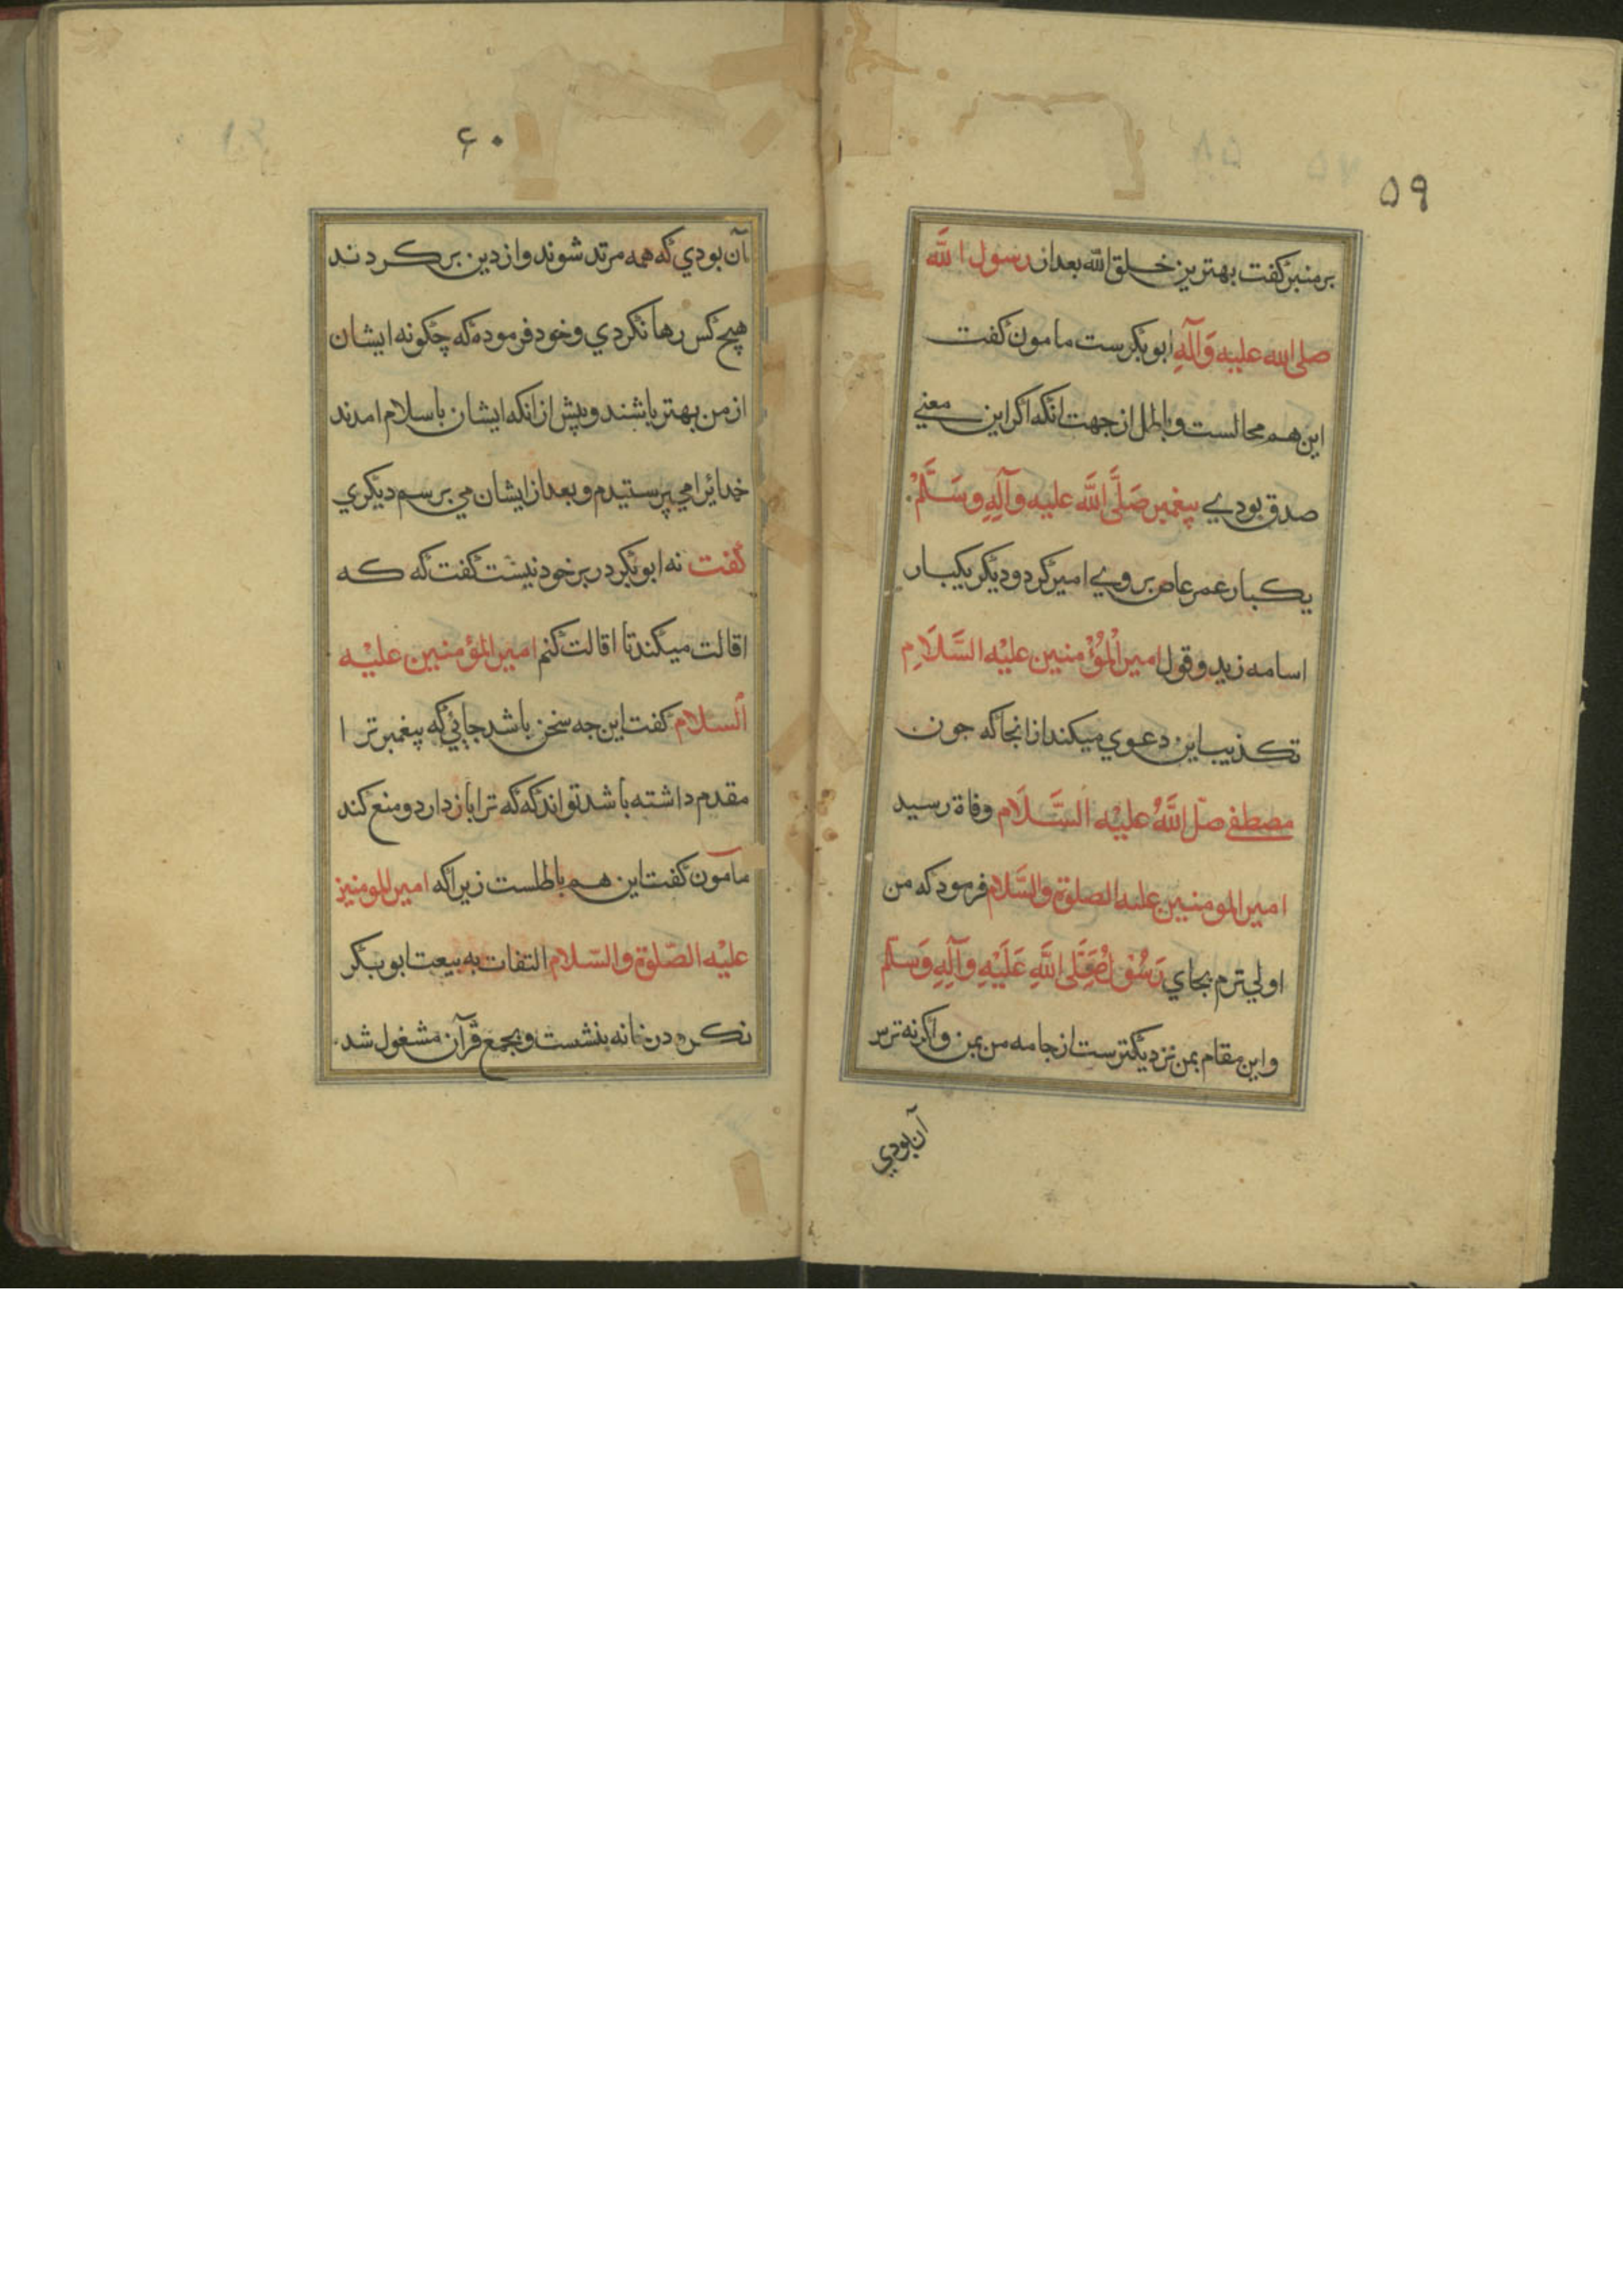 ۵۹
بر منبر کفت بهترین خلق الله بعد از رسول الله
صلی الله علیه وَآلِهِ ابو بکرست مامون کفت
این هم محالست و باطل از جهت انکه اکر این معنی
صدق بودی پیغمبر صَلَّی اللَّه علیه وآلِهِ وسَلَّمْ
یکبار عمر عاص بر وی امیر کرد و دیکر یکبار
اسامه زید و قول امیر الْمُؤْمنین علیْه السَّلَامِ
تکذیب این دعوی میکند از انجا که جون
مصطفی صلَّ اللَّهُ علیْه السَّلَام وفاة رسید
امیر المومنین علیه الصلوة والسَّلام فرمود که من
اولی ترم بجای رَسُوْل صَلَّی اللَّهِ عَلَیْهِ وَآلِهِ وَسَلَّم
و این مقام بمن نزدیکترست از جامه من بمن و اکر نه ترس
آن بودی
۶۰
آن بودی که همه مرتد شوند و از دین بر کردند
هیچ کس رها نکردی و خود فرموده که چکونه ایشان
از من بهتر باشند و پیش از انکه ایشان باسلام امدند
خدائرا می پرستیدم و بعد از ایشان می برسم دیکری
کفت نه ابو بکر در بر خود نیشت کفت که که
اقالت میکند تا اقالت کنم امیر المؤمنین علیْه
السلام کفت این جه سخن باشد جائی که پیغمبر ترا
مقدم داشته باشد تواند که که ترا باز دارد و منع کند
مامون کفت این هم باطلست زیرا که امیر المومنین
علیْه الصّلوة والسّلام التفات به بیعت ابو بکر
نکرد در خانه بنشست و بجمع قرآن مشغول شد